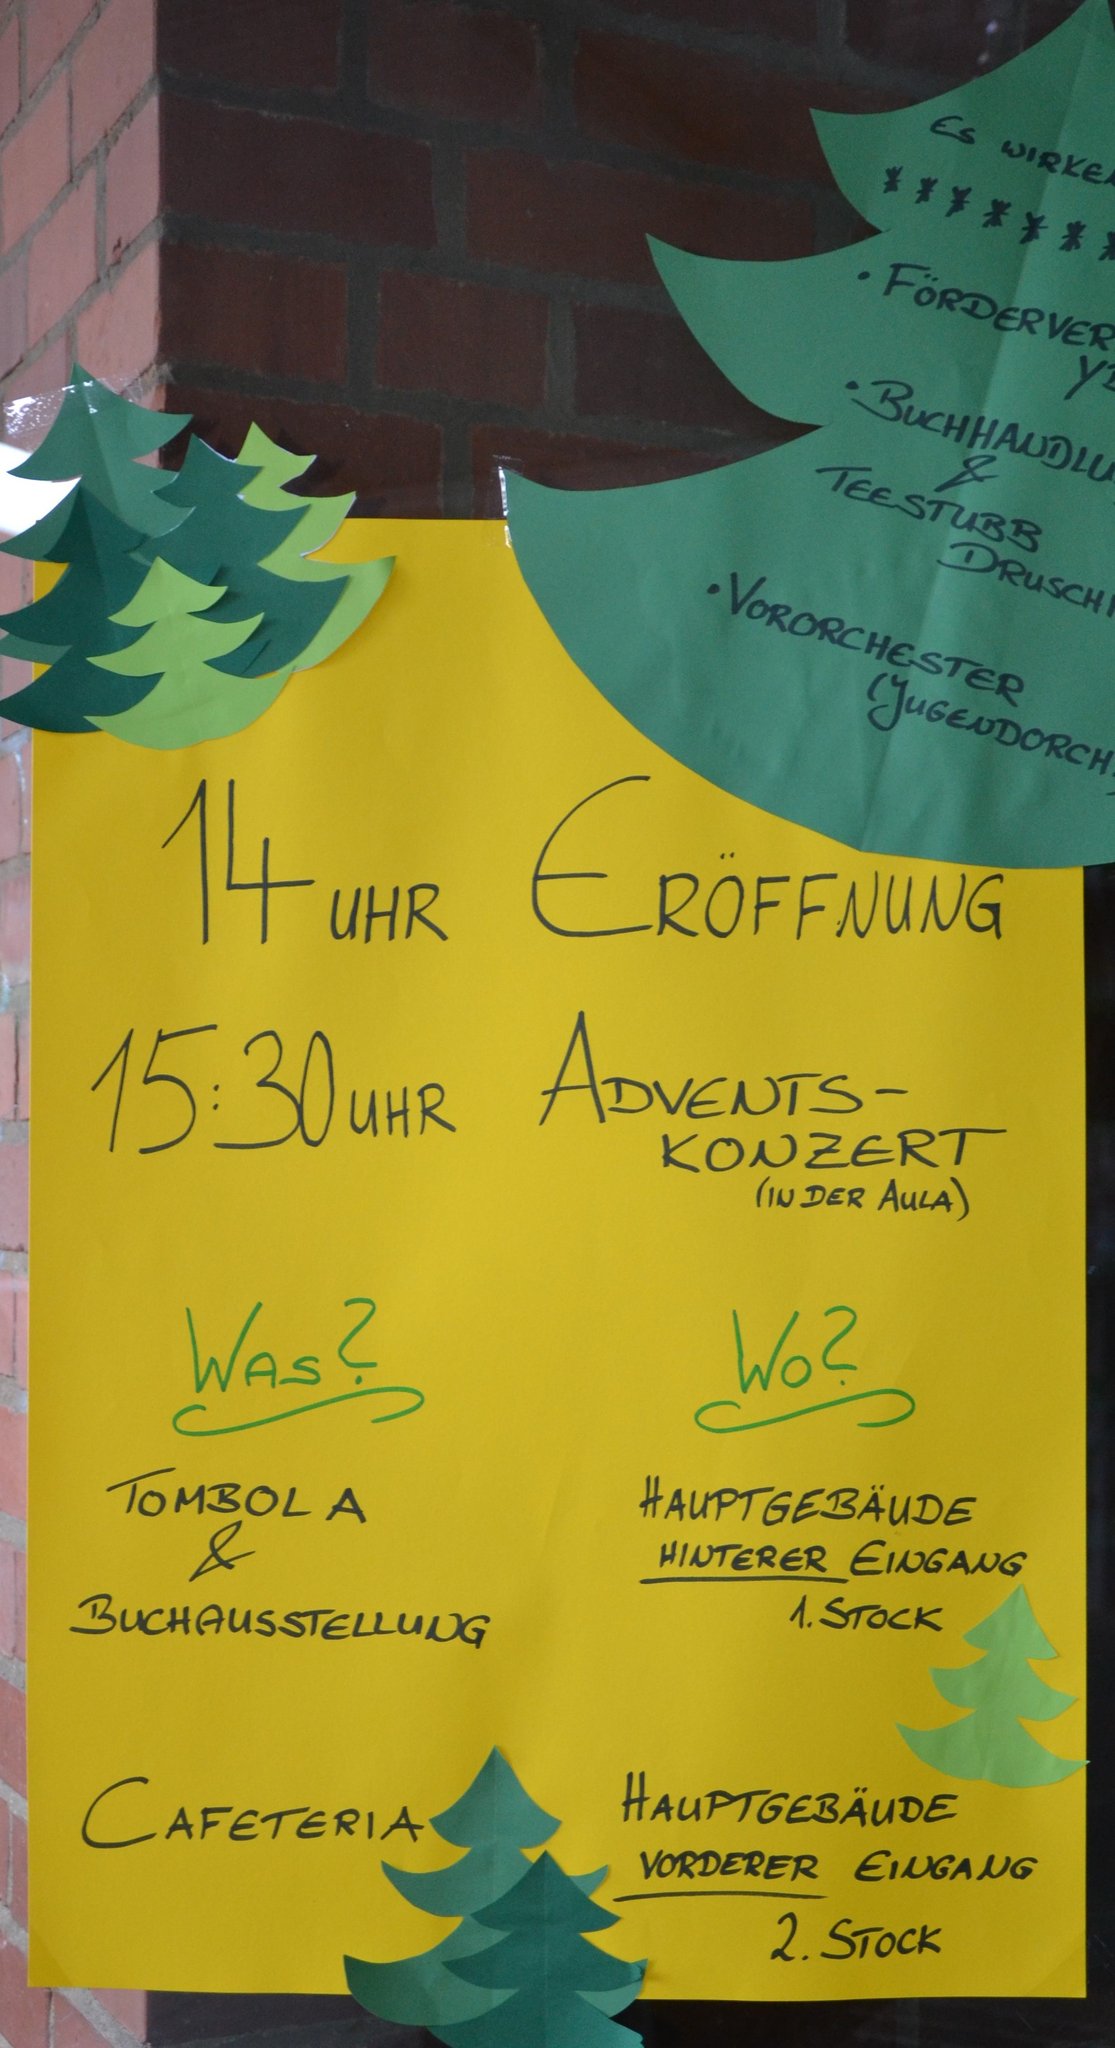 Es WIRKEN
* * * * * * *
• FÖRDERVER
• BUCHHANDLU
&
TEESTUBB
DRUSCH
• VORORCHESTER
(JUGENDORCH
14 UHR ERÖFFNUNG
15:30 UHR ADVENTS-
KONZERT
(IN DER AULA)
WAS? WO?
TOMBOLA
&
BUCHAUSSTELLUNG
HAUPTGEBÄUDE
HINTERER EINGANG
1. STOCK
CAFETERIA
HAUPTGEBÄUDE
VORDERER EINGANG
2. STOCK